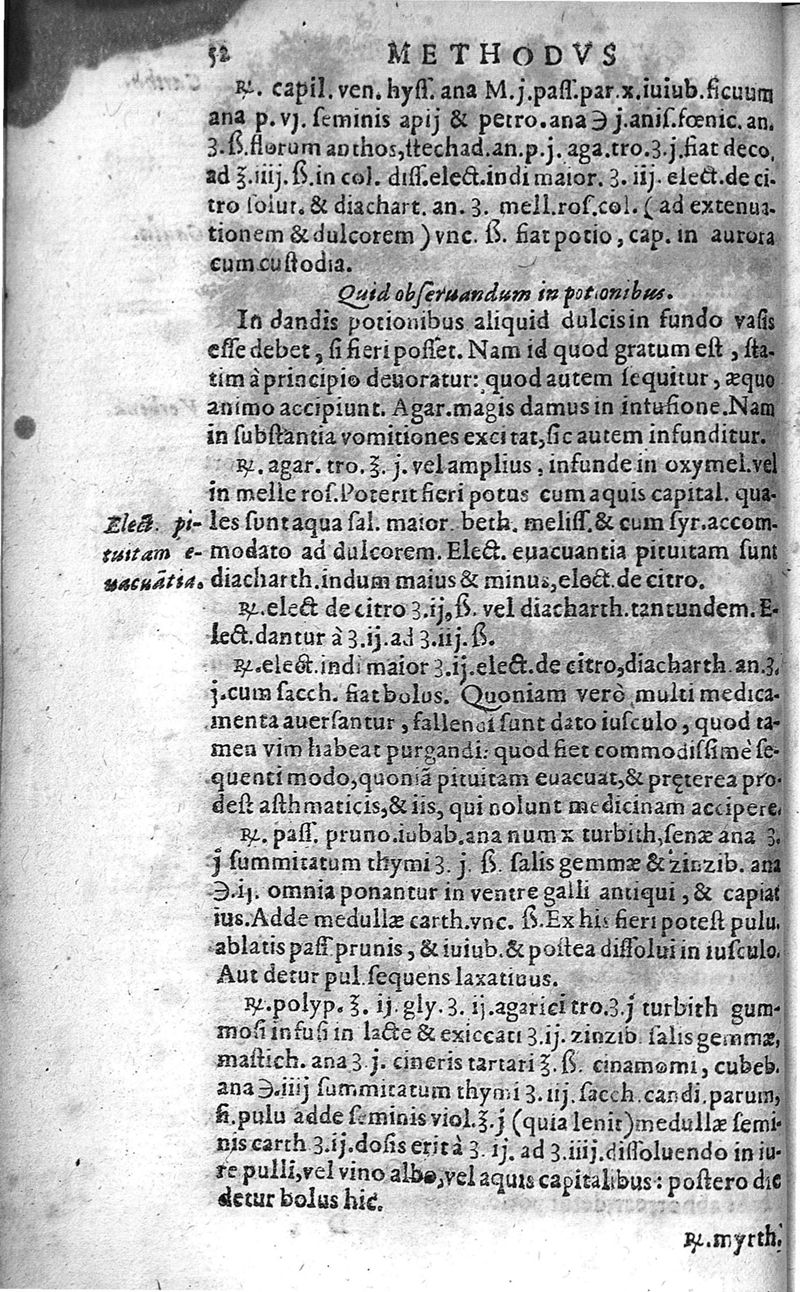 52 METHODVS
℞. capil. ven. hyſſ. ana M.j.paſſ.par.x.iuiub.ficuum
ana p. vj. ſeminis apij & petro.ana ℈ j.aniſ.fœnic. an.
ʒ.ß.florum anthos,ſtechad.an.p.j. aga.tro.ʒ.j.fiat deco,
ad ℥.iiij. ß.in col. diſſ.elect.indi maior. ʒ. iij. elect.de ci-
tro ſolut. & diachart. an. ʒ. mell.roſ.col. ( ad extenua-
tionem & dulcorem ) vnc. ß. fiat potio, cap. in aurora
cum cuſtodia.
Quid obſeruandum in potionibus.
In dandis potionibus aliquid dulcis in fundo vaſis
eſſe debet, ſi fieri poſſet. Nam id quod gratum eſt, ſta-
tim à principio deuoratur: quod autem ſequitur, æquo
animo accipiunt. Agar.magis damus in infuſione.Nam
in ſubſtantia vomitiones excitat,ſic autem infunditur.
℞. agar. tro. ʒ. j. vel amplius, infunde in oxymel.vel
in melle roſ.Poterit fieri potus cum aquis capital. qua-
les ſunt aqua ſal. maior. beth. meliſſ.& cum ſyr.accom-
modato ad dulcorem. Elect. euacuantia pituitam ſunt
diacharth.indum maius & minus,elect.de citro.
Elect. pi-
tuitam e-
uacuātia.
℞.elect de citro ʒ.ij,ß. vel diacharth.tantundem. E-
lect.dantur à ʒ.ij.ad ʒ.iij.ß.
℞.elect.indi maior ʒ.ij.elect.de citro,diacharth.an.ʒ.
j.cum ſacch. fiat bolus. Quoniam verò multi medica-
menta auerſantur, fallendi ſunt dato iuſculo, quod ta-
men vim habeat purgandi: quod fiet commodiſſimè ſe-
quenti modo,quoniā pituitam euacuat,& pręterea pro-
deſt aſthmaticis,& iis, qui nolunt medicinam accipere.
℞. paſſ. pruno.iubab.ana num x turbith,ſenæ ana ʒ.
j ſummitatum thymi ʒ. j. ß. ſalis gemmæ & zinzib. ana
℈.ij. omnia ponantur in ventre galli antiqui, & capiat
ius.Adde medullæ carth.vnc. ß.Ex his fieri poteſt pulu.
ablatis paſſ prunis, & iuiub.& poſtea diſſolui in iuſculo.
Aut detur pul.ſequens laxatiuus.
℞.polyp. ℥. ij. gly. ʒ. ij.agarici tro.ʒ.j turbith gum-
moſi infuſi in lacte & exiccati ʒ.ij. zinzib. ſalis gemmæ,
maſtich. ana ʒ. j. cineris tartari ℥. ß. cinamomi, cubeb.
ana ℈.iiij ſummitatum thymi ʒ. iij. ſacch.candi.parum,
fi.pulu adde ſeminis viol.℥.j (quia lenit) medullæ ſemi-
nis carth ʒ.ij.doſis erit à ʒ. ij. ad ʒ.iiij.diſſoluendo in iu-
re pulli,vel vino albo,vel aquis capitalibus: poſtero die
detur bolus hic.
℞.myrth.